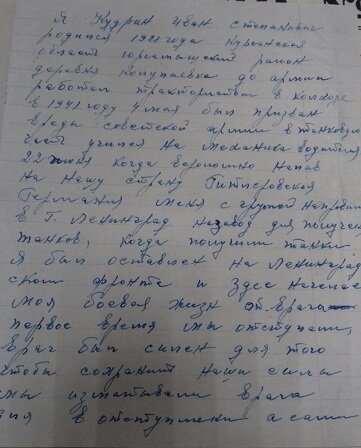 Я Кудрин Иван Степанович
родился 1921 года Курганской
област Юргамышский район
деревня Кокупаевка до армии
работал трактористом в колхозе
в 1941 году у мая был призван
в ряды советской армии в танковую
част учился на механика водителя
22 июня когда вероломно напав
на нашу страну Гитлеровская
Германия меня с групой направили
в г. Ленинград на завод для получен
танков, когда получили танки
я был оставлен на Ленинград
ском фронте и здес начинае
моя боевая жизн от врага
первое время мы отступали
враг был силен для того
чтобы сохранит наши силы
мы изматывали врага
в отступлении а сами